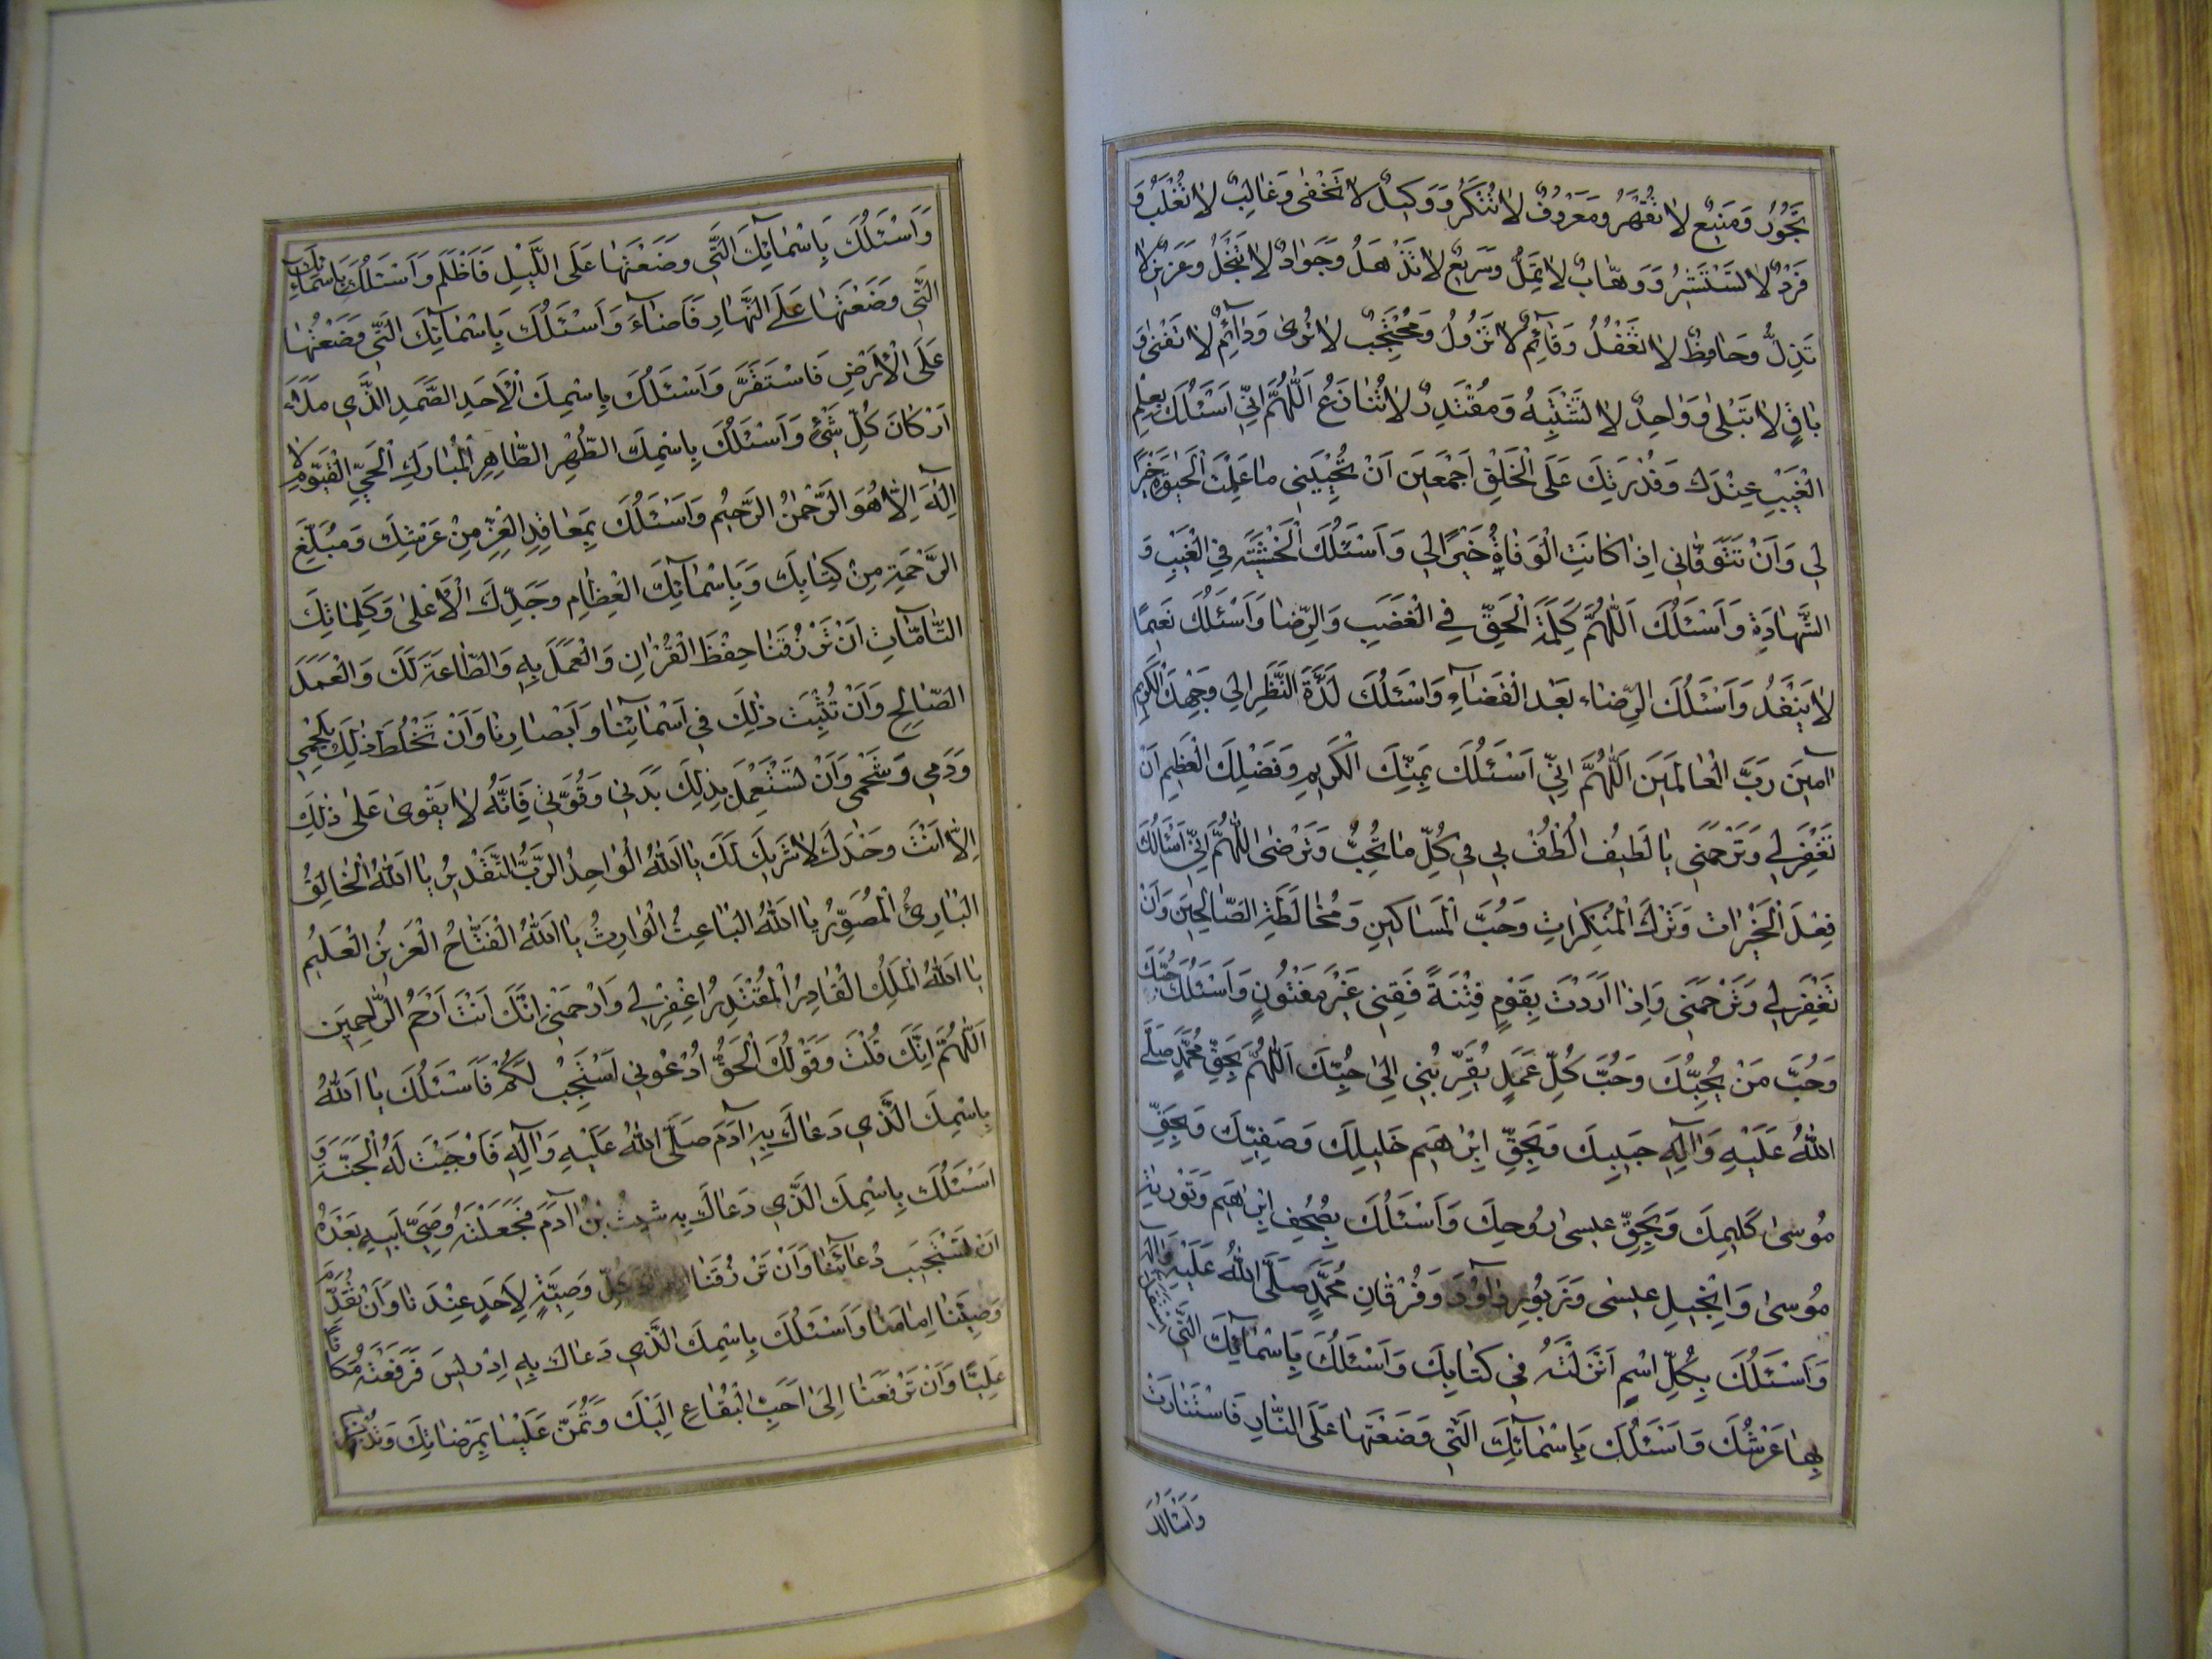 تَجُورُ وَمَنِيعٌ لَا تُقْهَرُ وَمَعْرُوفٌ لَا تُنْكَرُ وَوَكِيلٌ لَا تَخْفَى وَغَالِبٌ لَا تُغْلَبُ وَ
فَرْدٌ لَا تَسْتَشِيرُ وَوَهَّابٌ لَا تَمَلُّ وَسَرِيعٌ لَا تَذْهَلُ وَجَوَادٌ لَا تَبْخَلُ وَعَزِيزٌ لَا
تَذِلُّ وَحَافِظٌ لَا تَغْفُلُ وَقَآئِمٌ لَا تَزُولُ وَمُحْتَجِبٌ لَا تُرَى وَدَآئِمٌ لَا تَفْنَى وَ
بَاقٍ لَا تَبْلَى وَوَاحِدٌ لَا تَشْتَبِهُ وَمُقْتَدِرٌ لَا تُنَازَعُ اَللّٰهُمَّ اِنِّي اَسْئَلُكَ بِعِلْمِ
الْغَيْبِ عِنْدَكَ وَقُدْرَتِكَ عَلَى الْخَلْقِ اَجْمَعِينَ اَنْ تُحْيِيَنِي مَا عَلِمْتَ الْحَيٰوةَ خَيْرًا
لِي وَاَنْ تَتَوَفَّانِي اِذَا كَانَتِ الْوَفَاةُ خَيْرًا لِي وَاَسْئَلُكَ الْخَشْيَةَ فِي الْغَيْبِ وَ
الشَّهَادَةِ وَاَسْئَلُكَ اَللّٰهُمَّ كَلِمَةَ الْحَقِّ فِي الْغَضَبِ وَالرِّضَا وَاَسْئَلُكَ نَعِيمًا
لَا يَنْفَدُ وَاَسْئَلُكَ الرِّضَاءَ بَعْدَ الْقَضَآءِ وَاَسْئَلُكَ لَذَّةَ النَّظَرِ اِلَى وَجْهِكَ الْكَرِيمِ
اٰمِينَ رَبَّ الْعَالَمِينَ اَللّٰهُمَّ اِنِّي اَسْئَلُكَ بِمَنِّكَ الْكَرِيمِ وَفَضْلِكَ الْعَظِيمِ اَنْ
تَغْفِرَ لِي وَتَرْحَمَنِي يَا لَطِيفُ اُلْطُفْ بِي فِي كُلِّ مَا تُحِبُّ وَتَرْضَى اَللّٰهُمَّ اِنِّي اَسْاَلُكَ
فِعْلَ الْخَيْرَاتِ وَتَرْكَ الْمُنْكَرَاتِ وَحُبَّ الْمَسَاكِينِ وَمُخَالَطَةِ الصَّالِحِينَ وَاَنْ
تَغْفِرَ لِي وَتَرْحَمَنِي وَاِذَا اَرَدْتَ بِقَوْمٍ فِتْنَةً فَقِنِي غَيْرَ مَفْتُونٍ وَاَسْئَلُكَ حُبَّكَ
وَحُبَّ مَنْ يُحِبُّكَ وَحُبَّ كُلِّ عَمَلٍ يُقَرِّبُنِي اِلَى حُبِّكَ اَللّٰهُمَّ بِحَقِّ مُحَمَّدٍ صَلَّى
اللهُ عَلَيْهِ وَاٰلِهِ حَبِيبِكَ وَبِحَقِّ اِبْرٰهِيمَ خَلِيلِكَ وَصَفِيِّكَ وَبِحَقِّ
مُوسَى كَلِيمِكَ وَبِحَقِّ عِيسَى رُوحِكَ وَاَسْئَلُكَ بِصُحُفِ اِبْرٰهِيمَ وَتَوْرٰيةِ
مُوسَى وَاِنْجِيلِ عِيسَى وَزَبُورِ دَاوُدَ وَفُرْقَانِ مُحَمَّدٍ صَلَّى اللهُ عَلَيْهِ وَاٰلِهِ
وَاَسْئَلُكَ بِكُلِّ اسْمٍ اَنْزَلْتَهُ فِي كِتَابِكَ وَاَسْئَلُكَ بِاَسْمَآئِكَ الَّتِي تَسْتَقِلُّ
بِهَا عَرْشُكَ وَاَسْئَلُكَ بِاَسْمَآئِكَ الَّتِي وَضَعْتَهَا عَلَى النَّارِ فَاسْتَنَارَتْ
وَاَسْاَلُكَ
وَاَسْئَلُكَ بِاَسْمَآئِكَ الَّتِي وَضَعْتَهَا عَلَى اللَّيْلِ فَاَظْلَمَ وَاَسْئَلُكَ بِاَسْمَآئِكَ
الَّتِي وَضَعْتَهَا عَلَى النَّهَارِ فَاَضَآءَ وَاَسْئَلُكَ بِاَسْمَآئِكَ الَّتِي وَضَعْتَهَا
عَلَى الْاَرْضِ فَاسْتَقَرَّ وَاَسْئَلُكَ بِاسْمِكَ الْاَحَدِ الصَّمَدِ الَّذِي مَلَأَ
اَرْكَانَ كُلِّ شَيْءٍ وَاَسْئَلُكَ بِاسْمِكَ الطُّهْرِ الطَّاهِرِ الْمُبَارَكِ الْحَيِّ الْقَيُّومِ لَا
اِلٰهَ اِلَّا هُوَ الرَّحْمٰنُ الرَّحِيمُ وَاَسْئَلُكَ بِمَعَاقِدِ الْعِزِّ مِنْ عَرْشِكَ وَمَبْلَغِ
الرَّحْمَةِ مِنْ كِتَابِكَ وَبِاَسْمَآئِكَ الْعِظَامِ وَجَدِّكَ الْاَعْلَى وَكَلِمَاتِكَ
التَّآمَّاتِ اَنْ تَرْزُقَنَا حِفْظَ الْقُرْاٰنِ وَالْعَمَلَ بِهِ وَالطَّاعَةَ لَكَ وَالْعَمَلَ
الصَّالِحَ وَاَنْ تُثْبِتَ ذٰلِكَ فِي اَسْمَاعِنَا وَاَبْصَارِنَا وَاَنْ تَخْلُطَ ذٰلِكَ بِلَحْمِي
وَدَمِي وَشَحْمِي وَاَنْ تَسْتَعْمِلَ بِذٰلِكَ بَدَنِي وَقُوَّتِي فَاِنَّهُ لَا يَقْوَى عَلَى ذٰلِكَ
اِلَّا اَنْتَ وَحْدَكَ لَا شَرِيكَ لَكَ يَا اَللهُ الْوَاحِدُ الرَّبُّ الْقَدِيرُ يَا اَللهُ الْخَالِقُ
الْبَارِئُ الْمُصَوِّرُ يَا اَللهُ الْبَاعِثُ الْوَارِثُ يَا اَللهُ الْفَتَّاحُ الْعَزِيزُ الْعَلِيمُ
يَا اَللهُ الْمَلِكُ الْقَادِرُ الْمُقْتَدِرُ اغْفِرْ لِي وَارْحَمْنِي اِنَّكَ اَنْتَ اَرْحَمُ الرَّاحِمِينَ
اَللّٰهُمَّ اِنَّكَ قُلْتَ وَقَوْلُكَ الْحَقُّ اُدْعُونِي اَسْتَجِبْ لَكُمْ فَاَسْئَلُكَ يَا اَللهُ
بِاسْمِكَ الَّذِي دَعَاكَ بِهِ اٰدَمَ صَلَّى اللهُ عَلَيْهِ وَاٰلِهِ فَاَوْجَبْتَ لَهُ الْجَنَّةَ وَ
اَسْئَلُكَ بِاسْمِكَ الَّذِي دَعَاكَ بِهِ شِيثُ بْنُ اٰدَمَ فَجَعَلْتَهُ وَصِيَّ اَبِيهِ بَعْدَهُ
اَنْ تَسْتَجِيبَ دُعَآئَنَا وَاَنْ تَرْزُقَنَا كُلِّ وَصِيَّةٍ لِاَحَدٍ عِنْدَنَا وَاَنْ نُقَدِّمَ
وَصِيَّتَنَا اِمَامَنَا وَاَسْئَلُكَ بِاسْمِكَ الَّذِي دَعَاكَ بِهِ اِدْرِيسَ فَرَفَعْتَهُ مَكَانًا
عَلِيًّا وَاَنْ تَرْفَعَنَا اِلَى اَحَبِّ الْبِقَاعِ اِلَيْكَ وَتَمُنَّ عَلَيْنَا بِمَرْضَاتِكَ